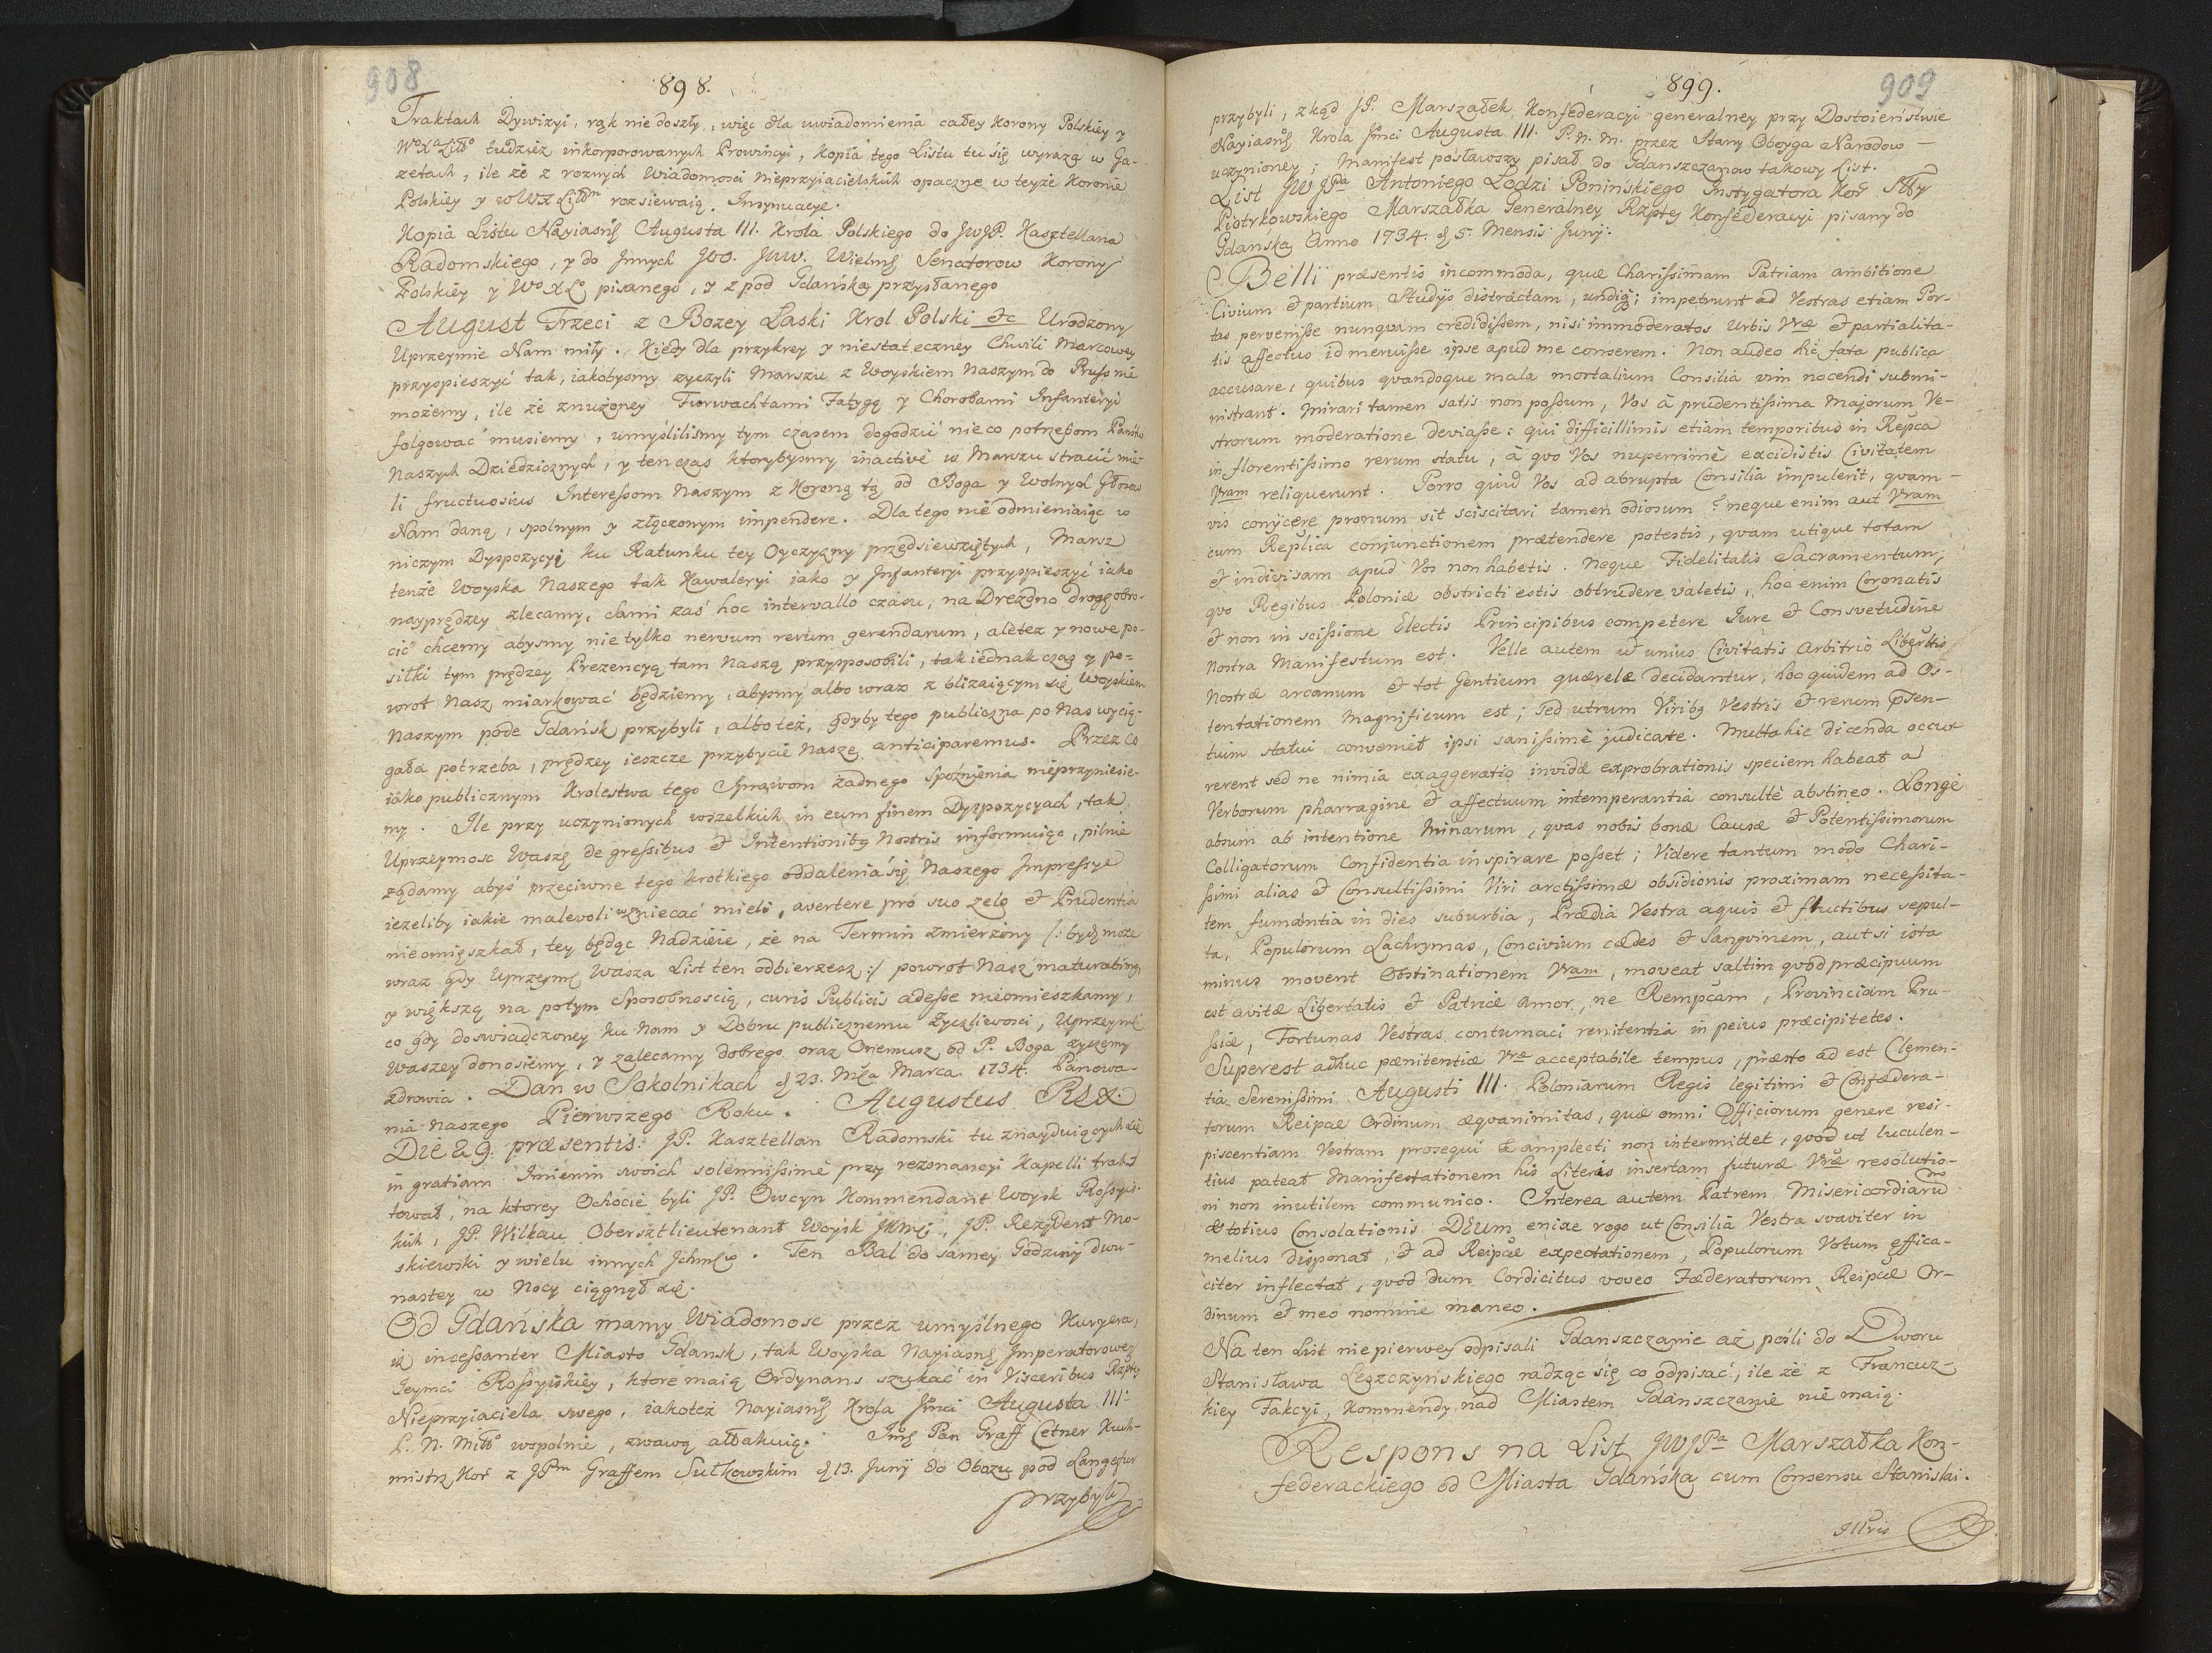 908
898.
Traktach Dywizyi, rąk nie doszły, więc dla uwiadomienia całey Korony Polskiey y
Wo Xa Litto tudziez inkorporowanych Prowincyi, Kopia tego Listu tu się wyraza w Ga-
zetach, ile że z roznych Wiadomosci Nieprzyiacielskich opaczne w teyże Koronie
Polskiey y w WX Littm rozsiewaią Insynuacye.
Kopia Listu Nayiasnsz Augusta III. Krola Polskiego do JWJP. Kasztellana
Radomskiego, y do Innych JWW. Wielm Senatorow Korony
Polskiey y Wo X Lo pisanego, y z pod Gdańska przysłanego
August Trzeci z Bozey Łaski Krol Polski etc Urodzony
Uprzeymie Nam miły. Kiedy dla przykrey y niestateczney Chwili Marcowey
przyspieszyć tak, iakobysmy zyczyli Marszu z Woyskiem Naszym do Pruss nie
możemy, ile że znużoney Forwachtami Fatygą y Chorobami Infanteryi
folgować musiemy, umyśliliśmy tym czasem dogodzić nieco potrzebom Państw
Naszych Dziedzicznych, y ten czas ktorybysmy inactivè w Marszu stracić mie-
li fructuosius Interessom Naszym z Koroną tą od Boga y Wolnych Głosow
Nam daną, spolnym y złączonym impendere. Dla tego nie odmieniaiąc w
niczym Dyspozycyi ku Ratunku tey Oyczyzny przedsiewziętych, Marsz
tenże Woyska Naszego tak Kawaleryi iako y Infanteryi przyspieszyć iako
nayprędzey zlecamy, Sami zaś hoc intervallo czasu, na Drezdno drogę obro-
cić chcemy abysmy nie tylko nervum rerum gerendarum, ale też y nowe po-
siłki tym prędzey Prezencyą tam Naszą przysposobili, tak iednak czas y po-
wrot Nasz miarkować będziemy, abysmy albo wraz z blizaiącym się Woyskiem
Naszym pode Gdańsk przybyli, albo też, gdyby tego publiczna po Nas wycią-
gała potrzeba, prędzey ieszcze przybycie Nasze anticiparemus. Przez co
iako publicznym Krolestwa tego Sprawom żadnego Spoznienia nieprzyniesie-
my. Ile przy uczynionych wszelkich in eum finem Dyspozycyach, tak
Uprzeymosc Waszę de gressibus et Intentionibus Nostris informuiąc, pilnie
ządamy abyś przeciwne tego krotkiego oddalenia się Naszego Impressye
iezeliby iakie malevoli wzniecać mieli, avertere pro suo zelo et Prudentia
nieomięszkał, tey będąc Nadzieie, że na Termin zmierzony /: bydz moze
wraz gdy Uprzeym Wasza List ten odbierzesz :/ powrot Nasz maturabimus,
y większą na potym Sposobnoscią, curis Publicis adesse nieomieszkamy,
co gdy doswiadczoney ku Nam y Dobru publicznemu Zyczliwosci, Uprzeym
Waszey donosiemy, y zalecamy dobrego oraz Oneniusz od P. Boga zyczemy
zdrowia. Dan w Sokolnikach d 23. Mca Marca 1734. Panowa-
nia Naszego Pierwszego Roku. Augustus REX.
Die 29. præsentis. JP. Kasztellan Radomski tu znayduiących się
in gratiam Imienin swoich solennissimè przy rezonancyi Kapelli trakt
tował, na ktorey Ochocie byli JP. Owcyn Kommendant Woysk Rossyis-
kich, JP. Wilkau Obersztlieutenant Woysk JKMci, JP. Rezydent Mo-
skiewski y wielu innych Ichmciow. Ten Bal do samey Godziny dwu-
nastey w Nocy ciągnął się.
Od Gdańska mamy Wiadomosc przez umyślnego Kuryera,
iż incessanter Miasto Gdansk, tak Woyska Nayiasn Imperatorowey
Ieymci Rossyiskiey, ktore maią Ordynans szukać in Visceribus Rzptey
Nieprzyiaciela swego, iakoteż Nayiasn Krola Jmci Augusta III.
P. N. Miłło wspolnie, zwawą attakuią. Jmsc Pan Graff Cetner Kuch-
mistrz Kor z JPm Graffem Sułkowskim d 13. Junÿ do Obozu pod Langefur
przybyli
909
899.
przybyli, zkąd JP. Marszałek Konfederacyi generalney przy Dostoieństwie
Nayiasn Krola Jmci Augusta III. P. N. M. przez Stany Oboyga Narodow
uczynioney; Manifest posławszy pisał do Gdanszczanow takowy List.
List JWJPa Antoniego Lodzi Poninskiego Instygatora Kor Stty
Piotrkowskiego Marszałka Generalney Rzptey Konfederacyi pisany do
Gdanska Anno 1734. d 5. Mensis Junÿ.
Belli præsentis incommoda, quæ Charissimam Patriam ambitione
Civium et partium Studÿs distractam, undiq; impetunt ad Vestras etiam Por-
tas pervenisse nunquam credidissem, nisi immoderatos Urbis Vræ et partialita-
tis affectus id meruisse ipse apud me conserem. Non audeo hic fata publica
accusare, quibus quandoque mala mortalium Consilia vim nocendi submi-
nistrant. Mirari tamen satis non possum, Vos à prudentissima Majorum Ve-
strorum moderatione deviasse: qui difficillimis etiam temporibus in Repca
in florentissimo rerum statu, à quo Vos nuperrimè excidistis Civitatem
Vram reliquerunt. Porro quid Vos ad abrupta Consilia impulerit, quam-
vis conÿcere pronum sit sciscitari tamen odiosum? neque enim aut Vram
cum Replica conjunctionem prætendere potestis, quam utique totam
et indivisam apud Vos non habetis. Neque Fidelitatis Sacramentum,
quo Regibus Poloniæ obstricti estis obtrudere valetis, hoc enim Coronatis
et non in scissione Electis Principibus competere Jure et Consvetudine
Nostra Manifestum est. Velle autem ut unius Civitatis Arbitrio Libertatis
Nostræ arcanum et tot Gentium quærelæ decidantur, hoc quidem ad Os-
tentationem Magnificum est; Sed utrum Viribus Vestris et rerum præsen-
tium statui conveniet ipsi sanissimè judicate. Multa hic dicenda occur
rerent sed ne nimia exaggeratio invidæ exprobrationis speciem habeat a
Verborum pharragine et affectuum intemperantia consultè abstineo. Longè
absum ab intentione Minarum, quas nobis bonæ Causæ et Potentissimorum
Colligatorum Confidentia inspirare posset; Videre tantum modo Chari-
ssimi alias et Consultissimi Viri arctissimæ obsidionis proximam necessita-
tem fumantia in dies suburbia, Prædia Vestra aquis et fluctibus sepul-
ta, Populorum Lachrymas, Concivium cædes et Sangvinem, aut si ista
minus movent Obstinationem Vram, moveat saltim quod præcipuum
est avitæ Libertatis et Patriæ Amor, ne Rempcam, Provinciam Pru-
ssiæ, Fortunas Vestras contumaci renitentia in peius præcipitetes.
Superest adhuc pænitentiæ Vræ acceptabile tempus, præsto ad est Clemen-
tia Serenissimi Augusti III. Poloniarum Regis legitimi et Confædera-
torum Reipcae Ordinum æquanimitas, quæ omni Officiorum genere resi-
piscentiam Vestram prosequi et amplecti non intermittet, quod ut luculen-
tius pateat Manifestationem his Literis insertam futuræ Vræ resolutio-
ni non inutilem communico. Interea autem Patrem Misericordiarum
et totius Consolationis Deum enixe rogo ut Consilia Vestra svaviter in
melius disponat, et ad Reipcæ expectationem, Populorum Votum effica-
citer inflectat, quod dum Cordicitus voveo Fæderatorum Reipcæ Or-
dinum et meo nomine maneo.
Na ten List nie pierwey odpisali Gdanszczanie aż pośli do Dworu
Stanisława Leszczyńskiego radząc się co odpisać, ile że z Francuz-
kiey Fakcyi, Kommendy nad Miastem Gdanszczanie nie maią.
Respons na List JWJPa Marszałka Kon-
federackiego od Miasta Gdańska cum Consensu Stanislai.